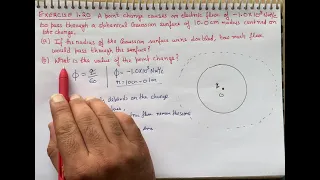 EXERCISE 1.20 A point charge causes an electric flux of -1.0×10³ Nm²/C
to pass through a spherical Gaussian surface of 10.0cm radius centred on
the charge.
(a) If the radius of the Gaussian surface were doubled, how much flux
would pass through the surface?
(b) What is the value of the point charge?
ϕ = q/ε₀
ϕ = -1.0×10³ Nm²/C
r = 10cm = 0.1m
depends on the charge
flux remains